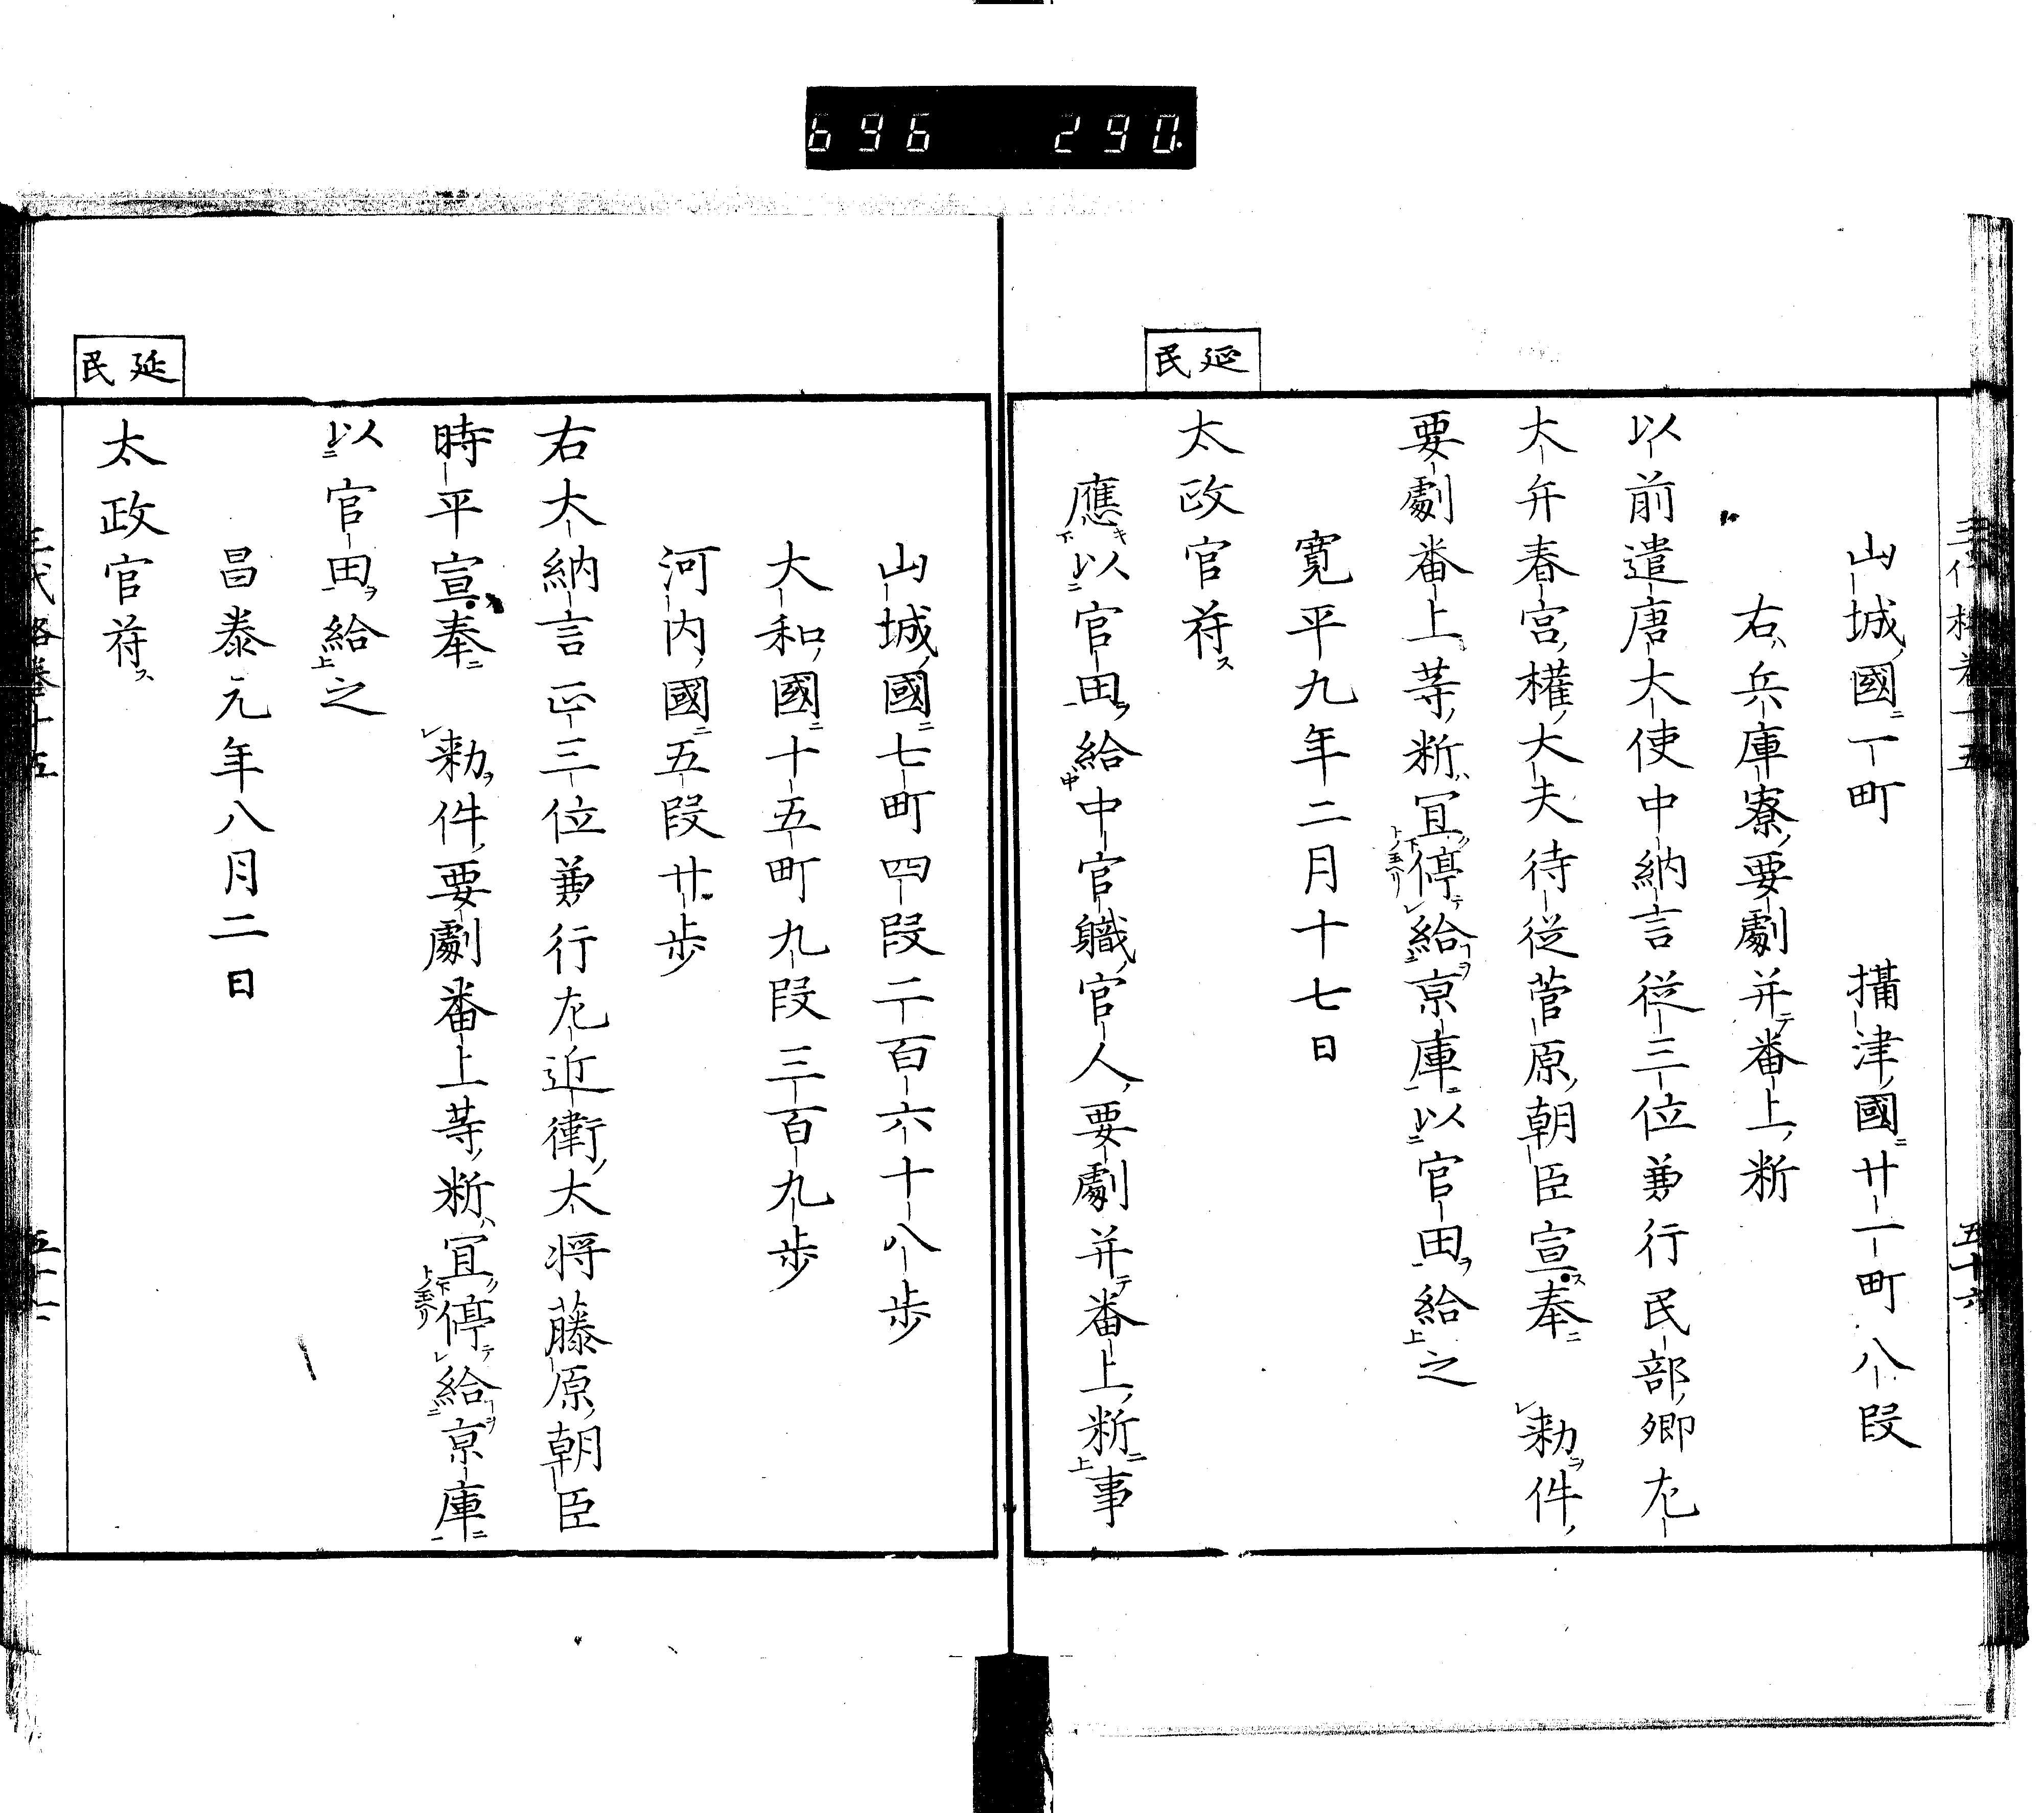 696 290
三代格卷十五 五十六
山城國一町 攝津國廿一町八段
右兵庫寮要劇并番上料
以前遣唐大使中納言從三位兼行民部卿左
大弁春宮權大夫待從菅原朝臣宣奉 勅件
要劇番上等料宜停給京庫以官田給之
寛平九年二月十七日
延民
太政官符
應以官田給中官職官人要劇并番上料事
山城國七町四段二百六十八步
大和國十五町九段三百九步
河内國五段廿步
右大納言正三位兼行左近衛大将藤原朝臣
時平宣奉 勅件要劇番上等料宜停給京庫
以官田給之
昌泰元年八月二日
延民
太政官符
三代格卷十五